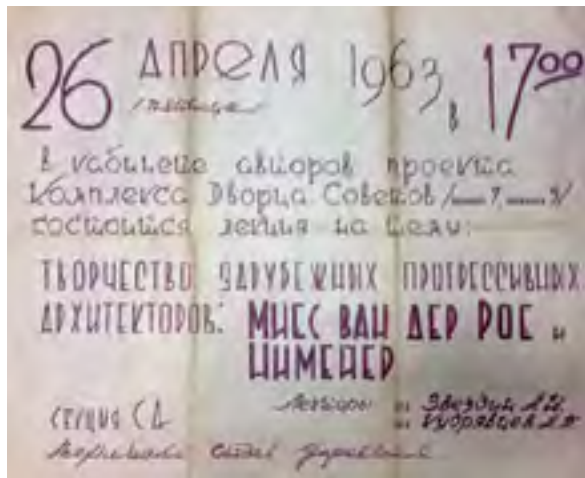 26 АПРЕЛЯ 1963 в 17⁰⁰
/пятница/
в кабинете авторов проекта
Комплекса Дворца Советов
состоится лекция на тему:
ТВОРЧЕСТВО ЗАРУБЕЖНЫХ ПРОГРЕССИВНЫХ
АРХИТЕКТОРОВ: МИЕС ВАН ДЕР РОЕ и
НИМЕЙЕР
Лекторы
Кудрявцев
секция СД